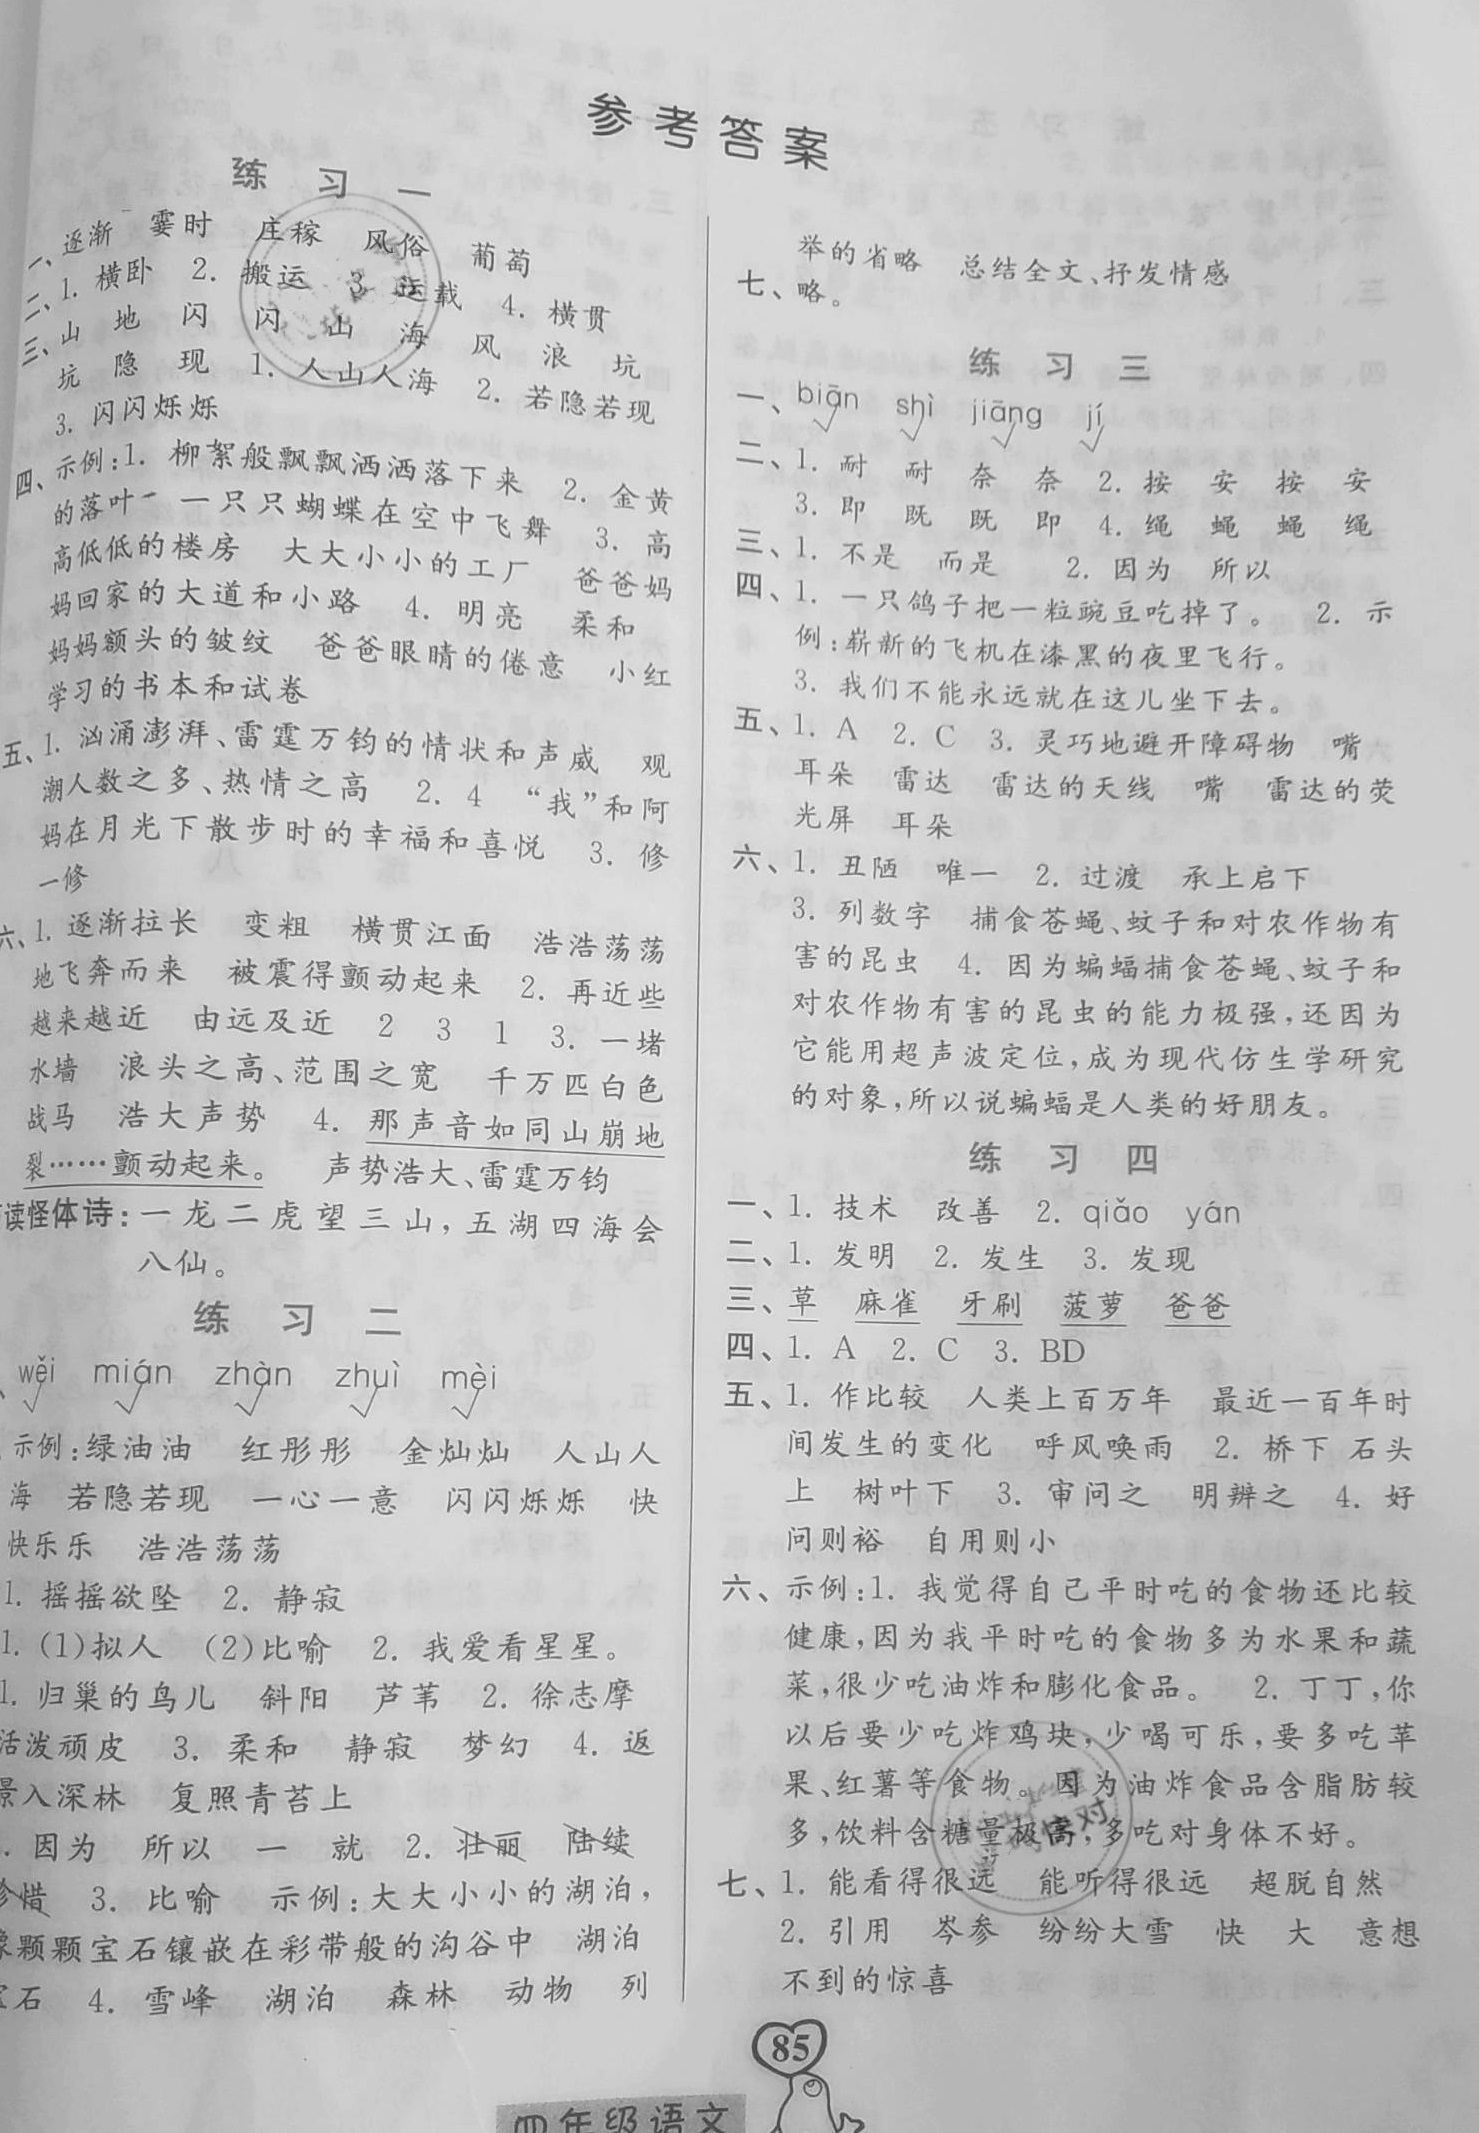 参考答案
练 习 一
一、逐渐 霎时 庄稼 风俗 葡萄
二、1. 横卧 2. 搬运 3. 运载 4. 横贯
三、山 地 闪 闪 山 海 风 浪 坑
坑 隐 现 1. 人山人海 2. 若隐若现
3. 闪闪烁烁
四、示例:1. 柳絮般飘飘洒洒落下来 2. 金黄
的落叶 一只只蝴蝶在空中飞舞 3. 高
高低低的楼房 大大小小的工厂 爸爸妈
妈回家的大道和小路 4. 明亮 柔和
妈妈额头的皱纹 爸爸眼睛的倦意 小红
学习的书本和试卷
五、1. 汹涌澎湃、雷霆万钧的情状和声威 观
潮人数之多、热情之高 2. 4 “我”和阿
妈在月光下散步时的幸福和喜悦 3. 修
一修
六、1. 逐渐拉长 变粗 横贯江面 浩浩荡荡
地飞奔而来 被震得颤动起来 2. 再近些
越来越近 由远及近 2 3 1 3. 一堵
水墙 浪头之高、范围之宽 千万匹白色
战马 浩大声势 4. 那声音如同山崩地
裂……颤动起来。 声势浩大、雷霆万钧
读怪体诗:一龙二虎望三山,五湖四海会
八仙。
练 习 二
wěi mián zhàn zhuì mèi
示例:绿油油 红彤彤 金灿灿 人山人
海 若隐若现 一心一意 闪闪烁烁 快
快乐乐 浩浩荡荡
1. 摇摇欲坠 2. 静寂
1. (1)拟人 (2)比喻 2. 我爱看星星。
1. 归巢的鸟儿 斜阳 芦苇 2. 徐志摩
活泼顽皮 3. 柔和 静寂 梦幻 4. 返
景入深林 复照青苔上
因为 所以 一 就 2. 壮丽 陆续
珍惜 3. 比喻 示例:大大小小的湖泊,
像颗颗宝石镶嵌在彩带般的沟谷中 湖泊
宝石 4. 雪峰 湖泊 森林 动物 列
举的省略 总结全文、抒发情感
七、略。
练 习 三
一、biān shì jiāng jí
二、1. 耐 耐 奈 奈 2. 按 安 按 安
3. 即 既 既 即 4. 绳 蝇 蝇 绳
三、1. 不是 而是 2. 因为 所以
四、1. 一只鸽子把一粒豌豆吃掉了。 2. 示
例:崭新的飞机在漆黑的夜里飞行。
3. 我们不能永远就在这儿坐下去。
五、1. A 2. C 3. 灵巧地避开障碍物 嘴
耳朵 雷达 雷达的天线 嘴 雷达的荧
光屏 耳朵
六、1. 丑陋 唯一 2. 过渡 承上启下
3. 列数字 捕食苍蝇、蚊子和对农作物有
害的昆虫 4. 因为蝙蝠捕食苍蝇、蚊子和
对农作物有害的昆虫的能力极强,还因为
它能用超声波定位,成为现代仿生学研究
的对象,所以说蝙蝠是人类的好朋友。
练 习 四
一、1. 技术 改善 2. qiǎo yán
二、1. 发明 2. 发生 3. 发现
三、草 麻雀 牙刷 菠萝 爸爸
四、1. A 2. C 3. BD
五、1. 作比较 人类上百万年 最近一百年时
间发生的变化 呼风唤雨 2. 桥下 石头
上 树叶下 3. 审问之 明辨之 4. 好
问则裕 自用则小
六、示例:1. 我觉得自己平时吃的食物还比较
健康,因为我平时吃的食物多为水果和蔬
菜,很少吃油炸和膨化食品。 2. 丁丁,你
以后要少吃炸鸡块,少喝可乐,要多吃苹
果、红薯等食物。因为油炸食品含脂肪较
多,饮料含糖量极高,多吃对身体不好。
七、1. 能看得很远 能听得很远 超脱自然
2. 引用 岑参 纷纷大雪 快 大 意想
不到的惊喜
85
四年级语文